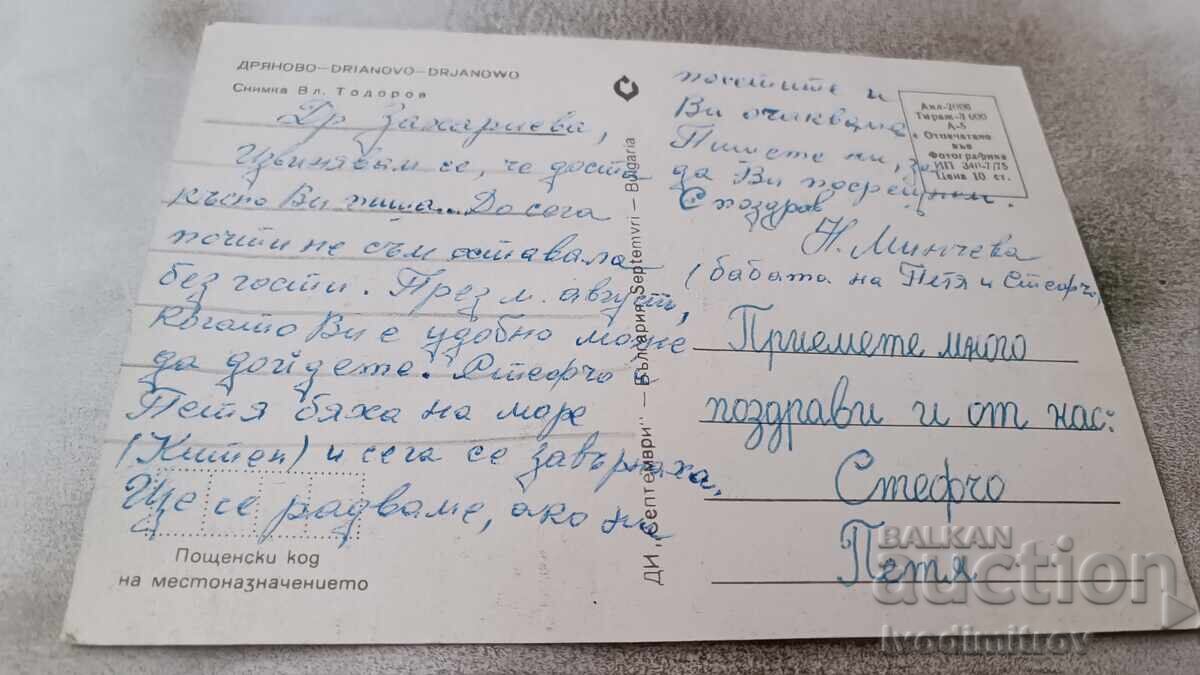 ДРЯНОВО—DRIANOVO—DRJANOWO
Снимка Вл. Тодоров
Др Захариева,
Извинявам се, че доста
късно Ви пиша.. До сега
почти не съм оставала
без гости. През м. август,
когато Ви е удобно може
да дойдете. Стефчо и
Петя бяха на море
(Китен) и сега се завърнаха,
Ще се радваме, ако ни
Пощенски код
на местоназначението
ДИ „Септември" — България Septemvri — Bulgaria
посетите и
Ви очакваме
Пишете ни, за
да Ви посрещнем.
С поздрав
Н. Минчева
(бабата на Петя и Стефчо)
Акл-2006
Тираж-8 000
А-5
Отпечатано
във
Фотографика
ИП 340-7/75
Цена 10 ст.
Приемете много
поздрави и от нас:
Стефчо
Петя
BALKAN
auction
ivodimitrov